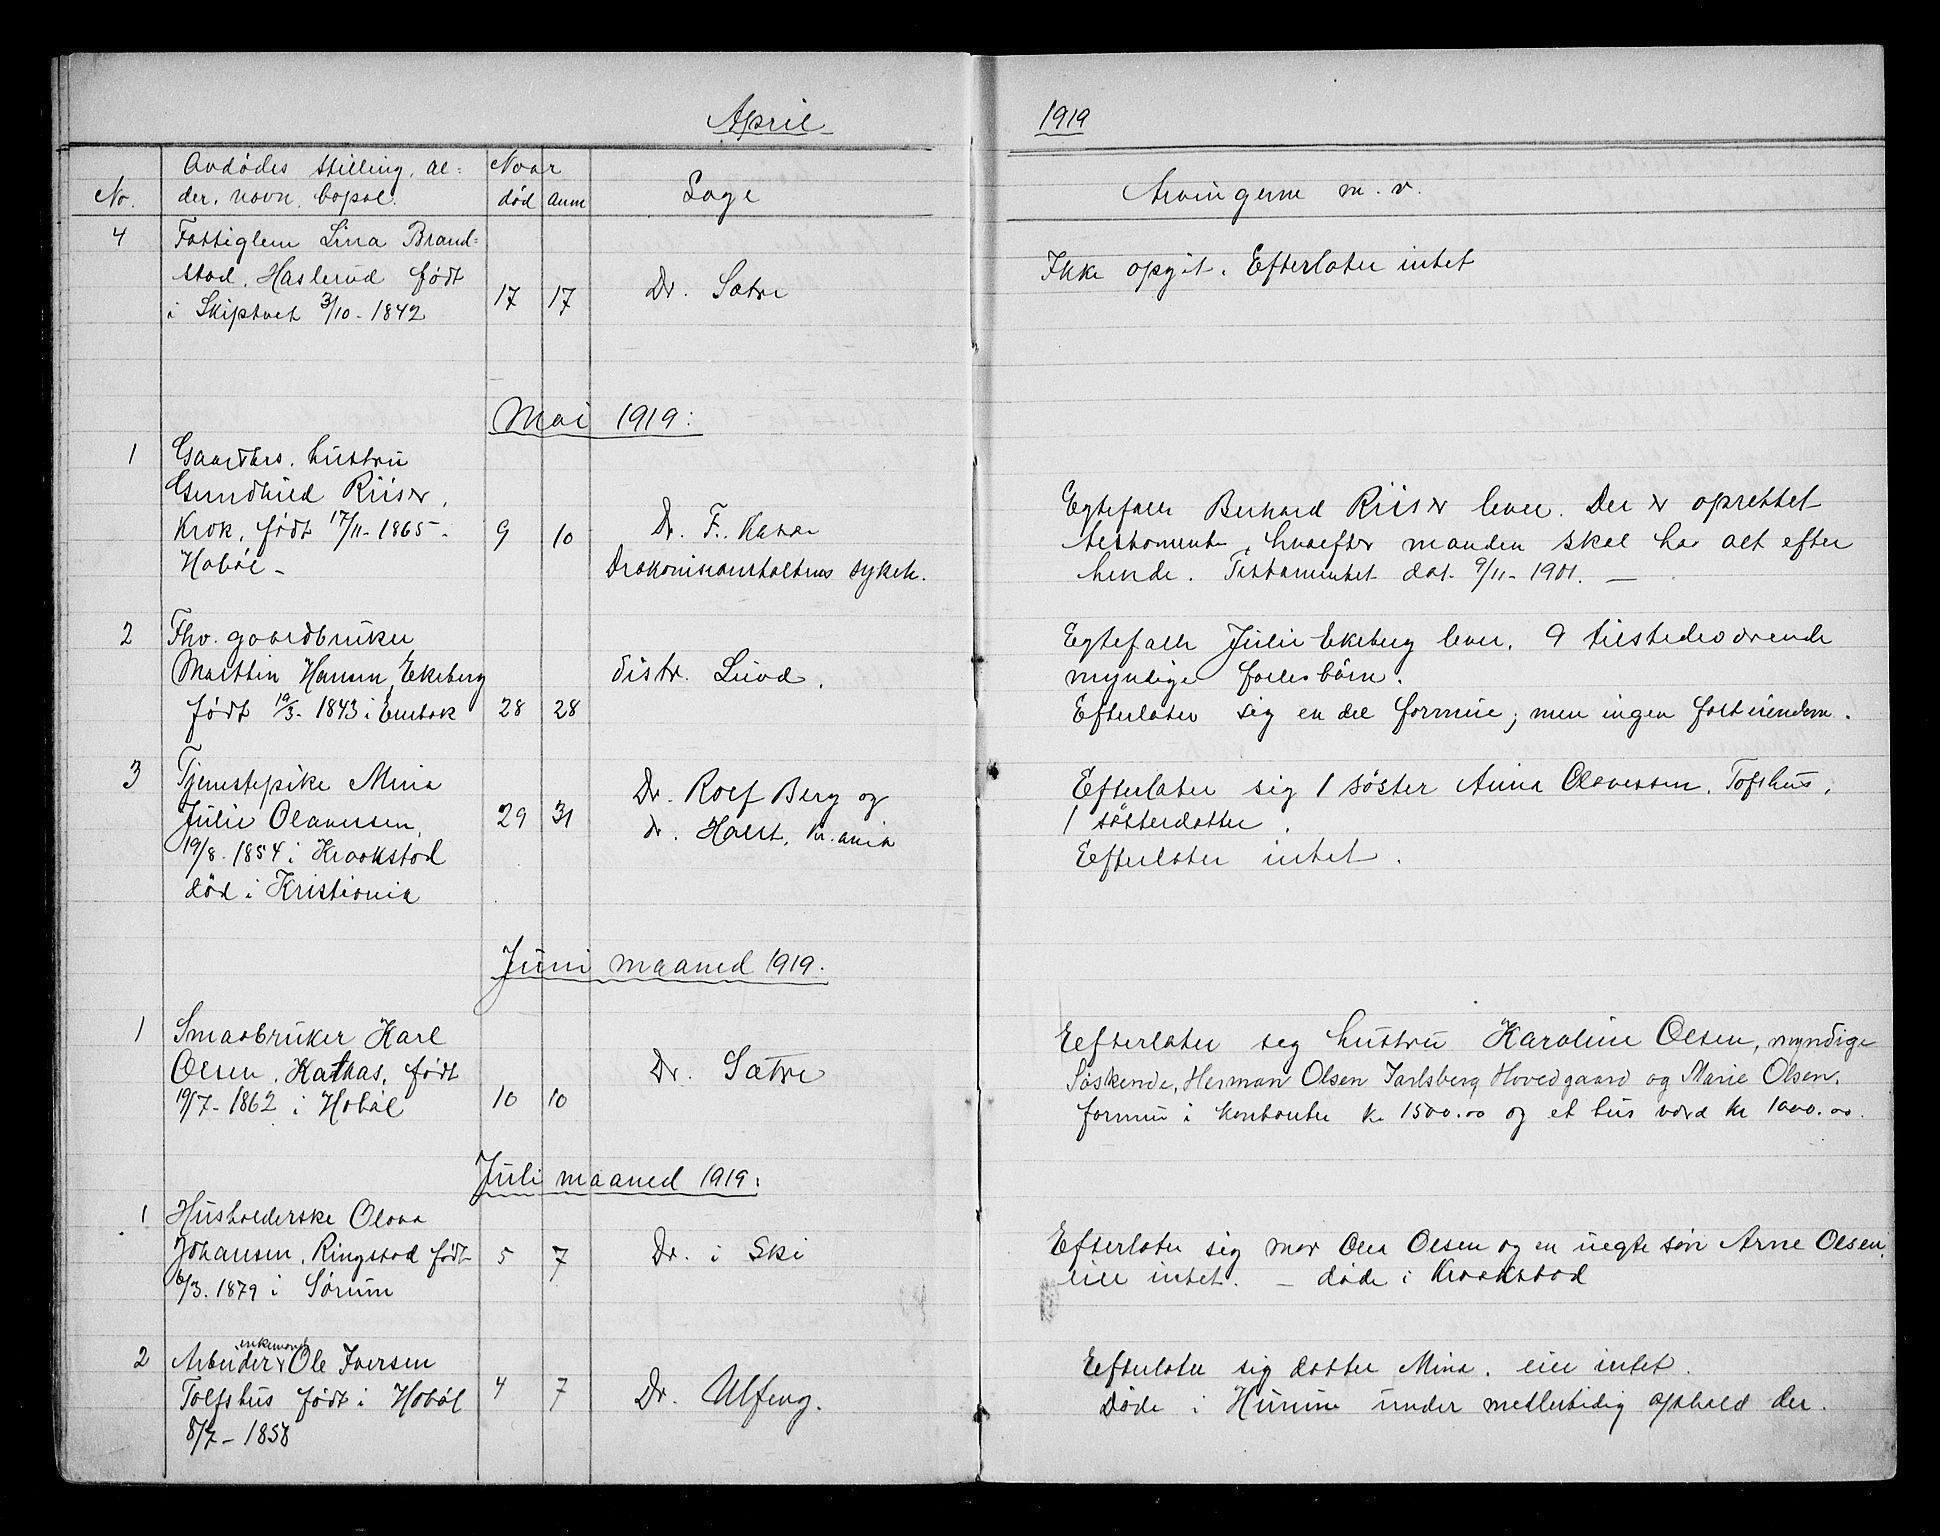 April
1919
No.
Avdødes stilling, al-
der, navn, bopæl.
Naar
død
anm
Læge
Arvingerne m. v.
4
Fattiglem Lina Brand-
stad, Haslerud født
i Skiptvet 3/10 - 1842
17
17
Dr. Sætre
Ikke opgit. Efterlater intet
Mai 1919:
1
Gaardbrs. hustru
Gundhild Riiser,
Krok, født 17/11 - 1865 -
Hobøl -
9
10
Dr. F.
Diakonisanstaltens sykeh.
Egtefælle Berhard Riiser lever. Der er oprettet
testamente, hvorefter manden skal ha alt efter
hende. Testamentet dat. 9/11 - 1901. -
2
Fhv. gaardbruker
Martin Hansen Ekeberg
født 19/3 - 1843 i Enebak
28
28
distr. Lund.
Egtefælle Julie Ekeberg lever, 9 tilstedeværende
myndige fællesbørn.
Efterlater sig en del formue, men ingen fast eiendom.
3
Tjenestepike Mina
Julie Olavesen,
19/8 - 1854 i Kraakstad
død i Kristiania
29
31
Dr. Rolf Berg og
dr. Holst, Kr.ania
Efterlater sig 1 søster Anna Olavessen, Tofshus,
1 søsterdatter.
Efterlater intet.
Juni maaned 1919.
1
Smaabruker Karl
Olsen, Kathas, født
19/7 - 1862 i Hobøl
10
10
Dr. Sætre
Efterlater seg hustru Karoline Olsen, myndige
Søskende, Herman Olsen Jarlsberg Hovedgaard og Marie Olsen.
formue i kontanter kr. 1500.00 og et hus værd kr 1000.00.
Juli maaned 1919:
1
Husholderske Olava
Johansen, Ringstad født
6/3. 1879 i Sørum
5
7
Dr. i Ski
Efterlater sig mor Olea Olsen og en uegte søn Arne Olsen.
eier intet. - døde i Kraakstad
2
enkemand
Arbeider Ole Iversen
Tolfshus født i Hobøl
8/7 - 1858
4
7
Dr. Ulfeng.
Efterlater sig datter Mina. eier intet.
Døde i under midlertidig ophold der.